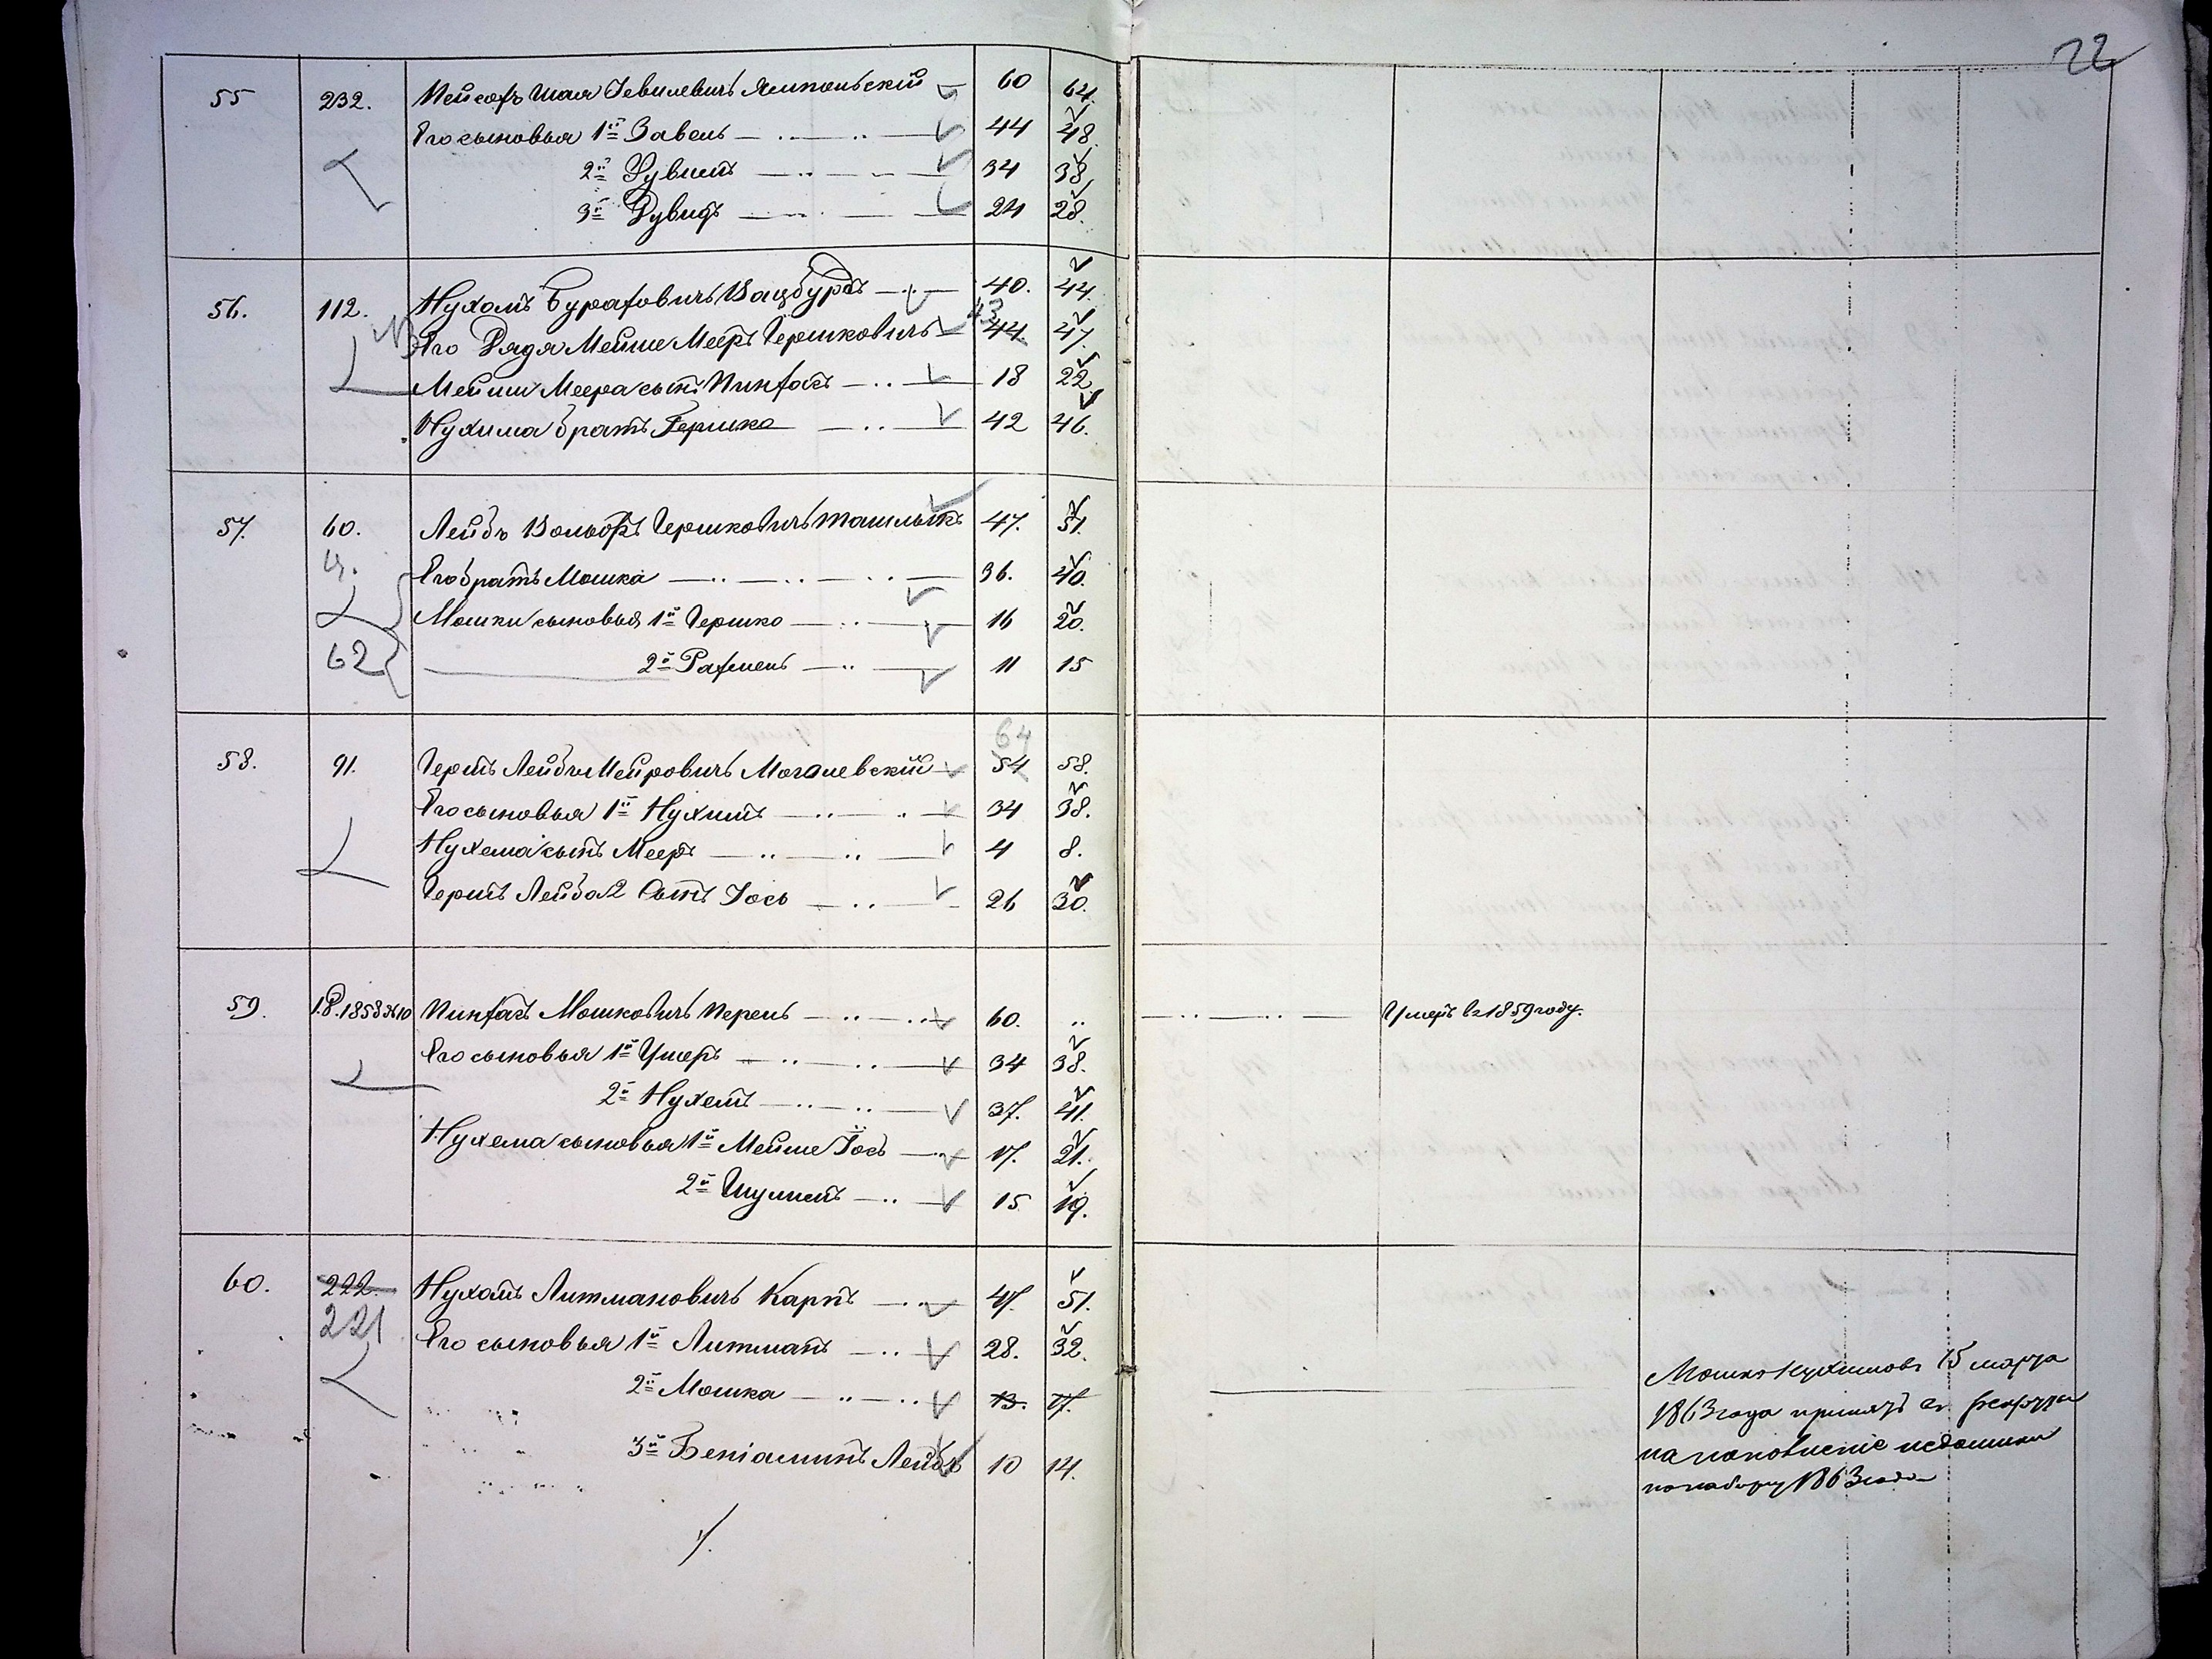 22
55 232. Мейсофъ Шая Гевилевичъ Ямпольскій 60 64.
Его сыновья 1й Завель 44 48.
2й Рувинъ 34 38.
3й Дувидъ 24 28.
56. 112. Нухомъ Бураховичъ 40. 44.
43
Его Дядя Мейше Мееръ Гершковичъ 44. 47.
Мейши Меера сынъ Пинхасъ 18 22.
Нухима братъ Гершко 42 46.
57. 60. Лейбъ Вольфъ Гершковичъ Ташлыкъ 47. 51.
Его братъ Мошка 36. 40.
Мошки сыновья 1й Гершко 16 20.
62 2й Рахмель 11 15
64
58. 91. Гершъ Лейбъ Меировичъ Могилевскій 54 58.
Его сыновья 1й Нухимъ 34 38.
Нухема сынъ Мееръ 4 8.
Гершъ Лейба 2 Сынъ Іось 26 30.
59. 1858 №10 Пинхасъ Мошковичъ Перель 60. .. Умеръ въ 1859 году.
Его сыновья 1й Ушеръ 34 38.
2й Нухемъ 37. 41.
Нухема сыновья 1й Мейше Іось 17. 21.
2й Шулимъ 15 19.
60. 222. Нухамъ Литмановичъ Карпъ 47. 51.
221 Его сыновья 1й Литманъ 28. 32.
2й Мошка 13. 17.
3й Беніаминъ Лейбъ 10 14.
Мошко Нухимовъ 15 марта
1863 года принятъ въ рекруты
на пополненіе недоимки
по набору 1863 года